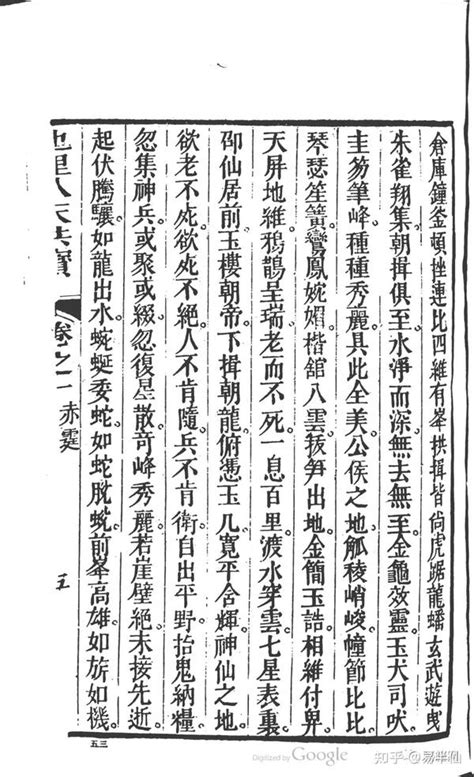 倉庫鐘釜頓挫連比四維有峯拱揖皆尙虎踞龍蟠玄武遊曳
朱雀翔集朝揖俱至水淨而深無去無至金龜效靈玉犬司吠
圭笏筆峰種種秀麗具此全美公侯之地觚稜峭峻幢節比比
琴瑟笙簧鸞鳳婉媚楷舘入雲拔笋出地金簡玉誥相維付畀
天屏地維鴉鵲呈瑞老而不死一息百里渡水穿雲七星表裏
卭仙居前玉樓朝帝下揖朝龍俯憑玉几寛平舍輝神仙之地
欲老不死欲死不絕人不肯隨兵不肯衛自出平野抬鬼納糧
忽集神兵或聚或綴忽復星散竒峰秀麗若崖壁絕未接先逝
起伏騰驤如龍出水蜿蜒委蛇如蛇脫蛻前峯高雄如旂如機
地理人天共寶 卷之一 赤霆 五
五三
Digitized by Google
知乎 @易半仙